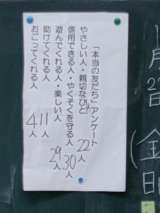 「本当の友だち」アンケート
やさしい人・親切なひと 22人
信用できる人・やくそくを守る人 30人
遊んでくれる人・楽しい人 29人
助けてくれる人 11人
おこってくれる人 4人